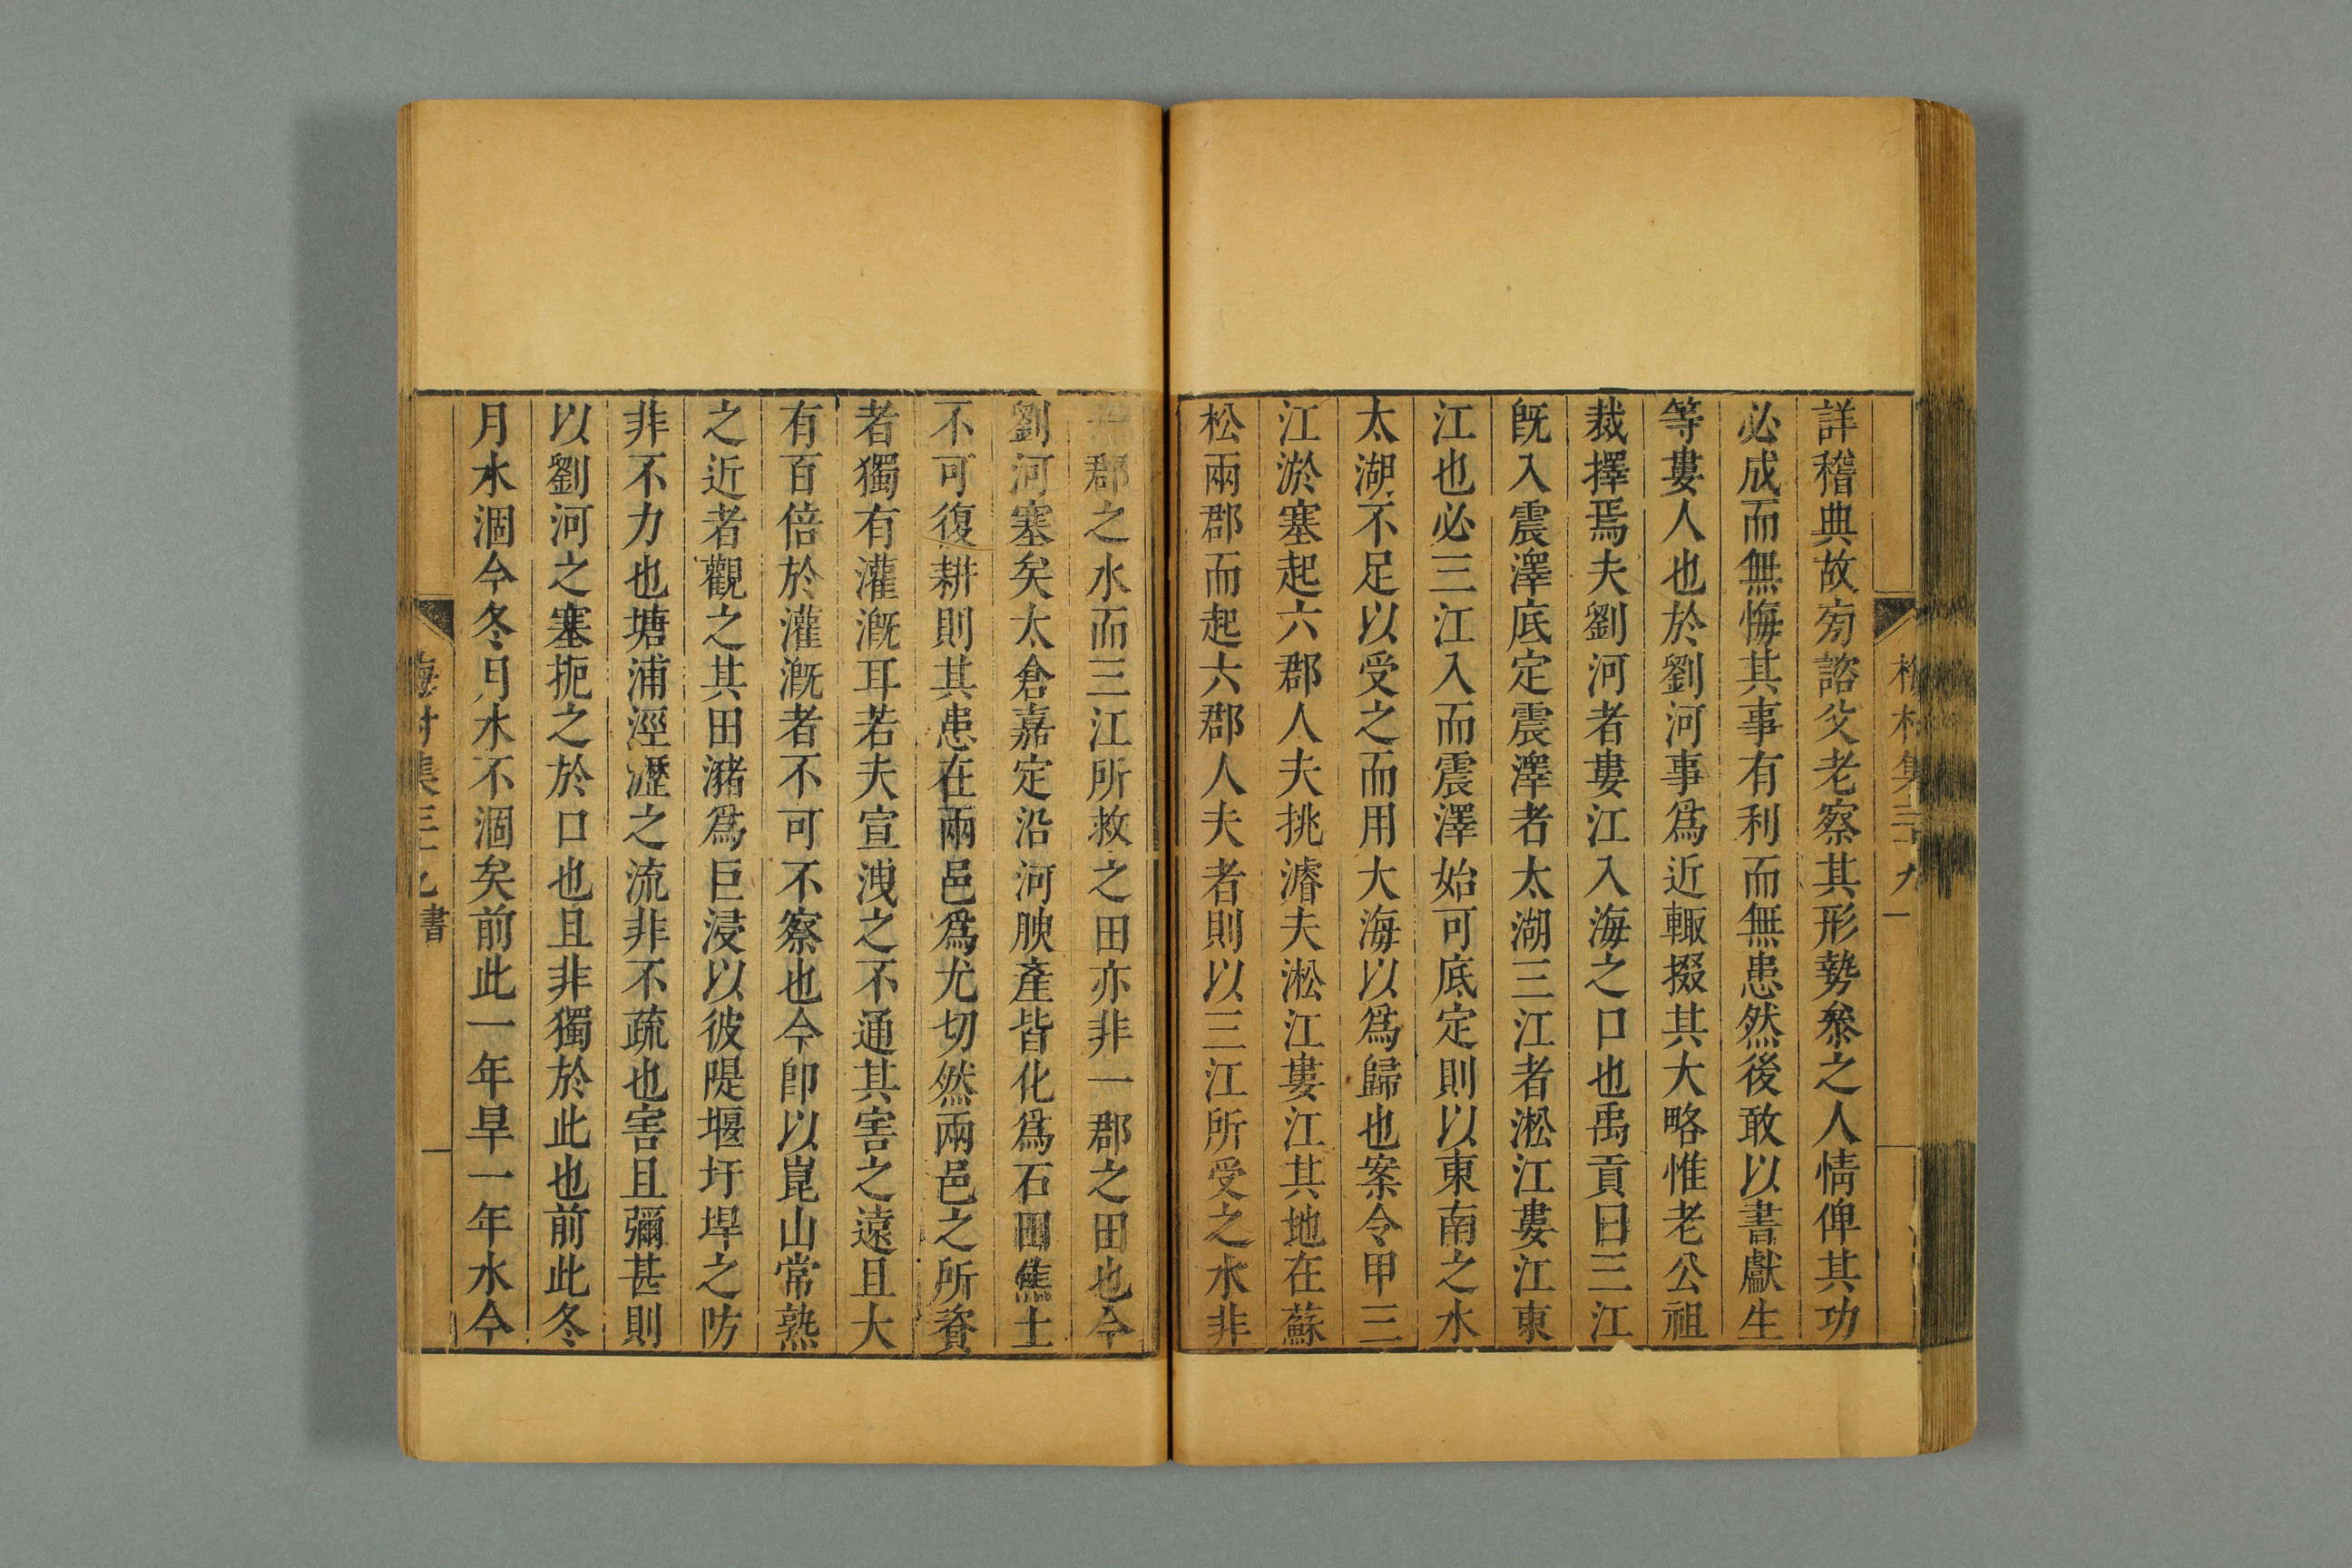 詳稽典故旁諮父老察其形勢叅之人情俾其功
必成而無悔其事有利而無患然後敢以書獻生
等婁人也於劉河事爲近輙掇其大略惟老公祖
裁擇焉夫劉河者婁江入海之口也禹貢曰三江
既入震澤底定震澤者太湖三江者淞江婁江東
江也必三江入而震澤始可底定則以東南之水
太湖不足以受之而用大海以爲歸也案令甲三
江淤塞起六郡人夫挑濬夫淞江婁江其地在蘇
松兩郡而起六郡人夫者則以三江所受之水非
郡之水而三江所救之田亦非一郡之田也今
劉河塞矣太倉嘉定沿河腴產皆化爲石田焦土
不可復耕則其患在兩邑爲尤切然兩邑之所資
者獨有灌漑耳若夫宣洩之不通其害之遠且大
有百倍於灌漑者不可不察也今卽以崑山常熟
之近者觀之其田瀦爲巨浸以彼隄堰圩埠之防
非不力也塘浦涇瀝之流非不疏也害且彌甚則
以劉河之塞扼之於口也且非獨於此也前此冬
月水涸今冬月水不涸矣前此一年旱一年水今
書